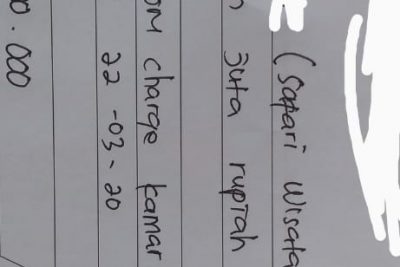 (Sapari Wisata
juta rupiah
OM charge kamar
22 -03-20
00.000